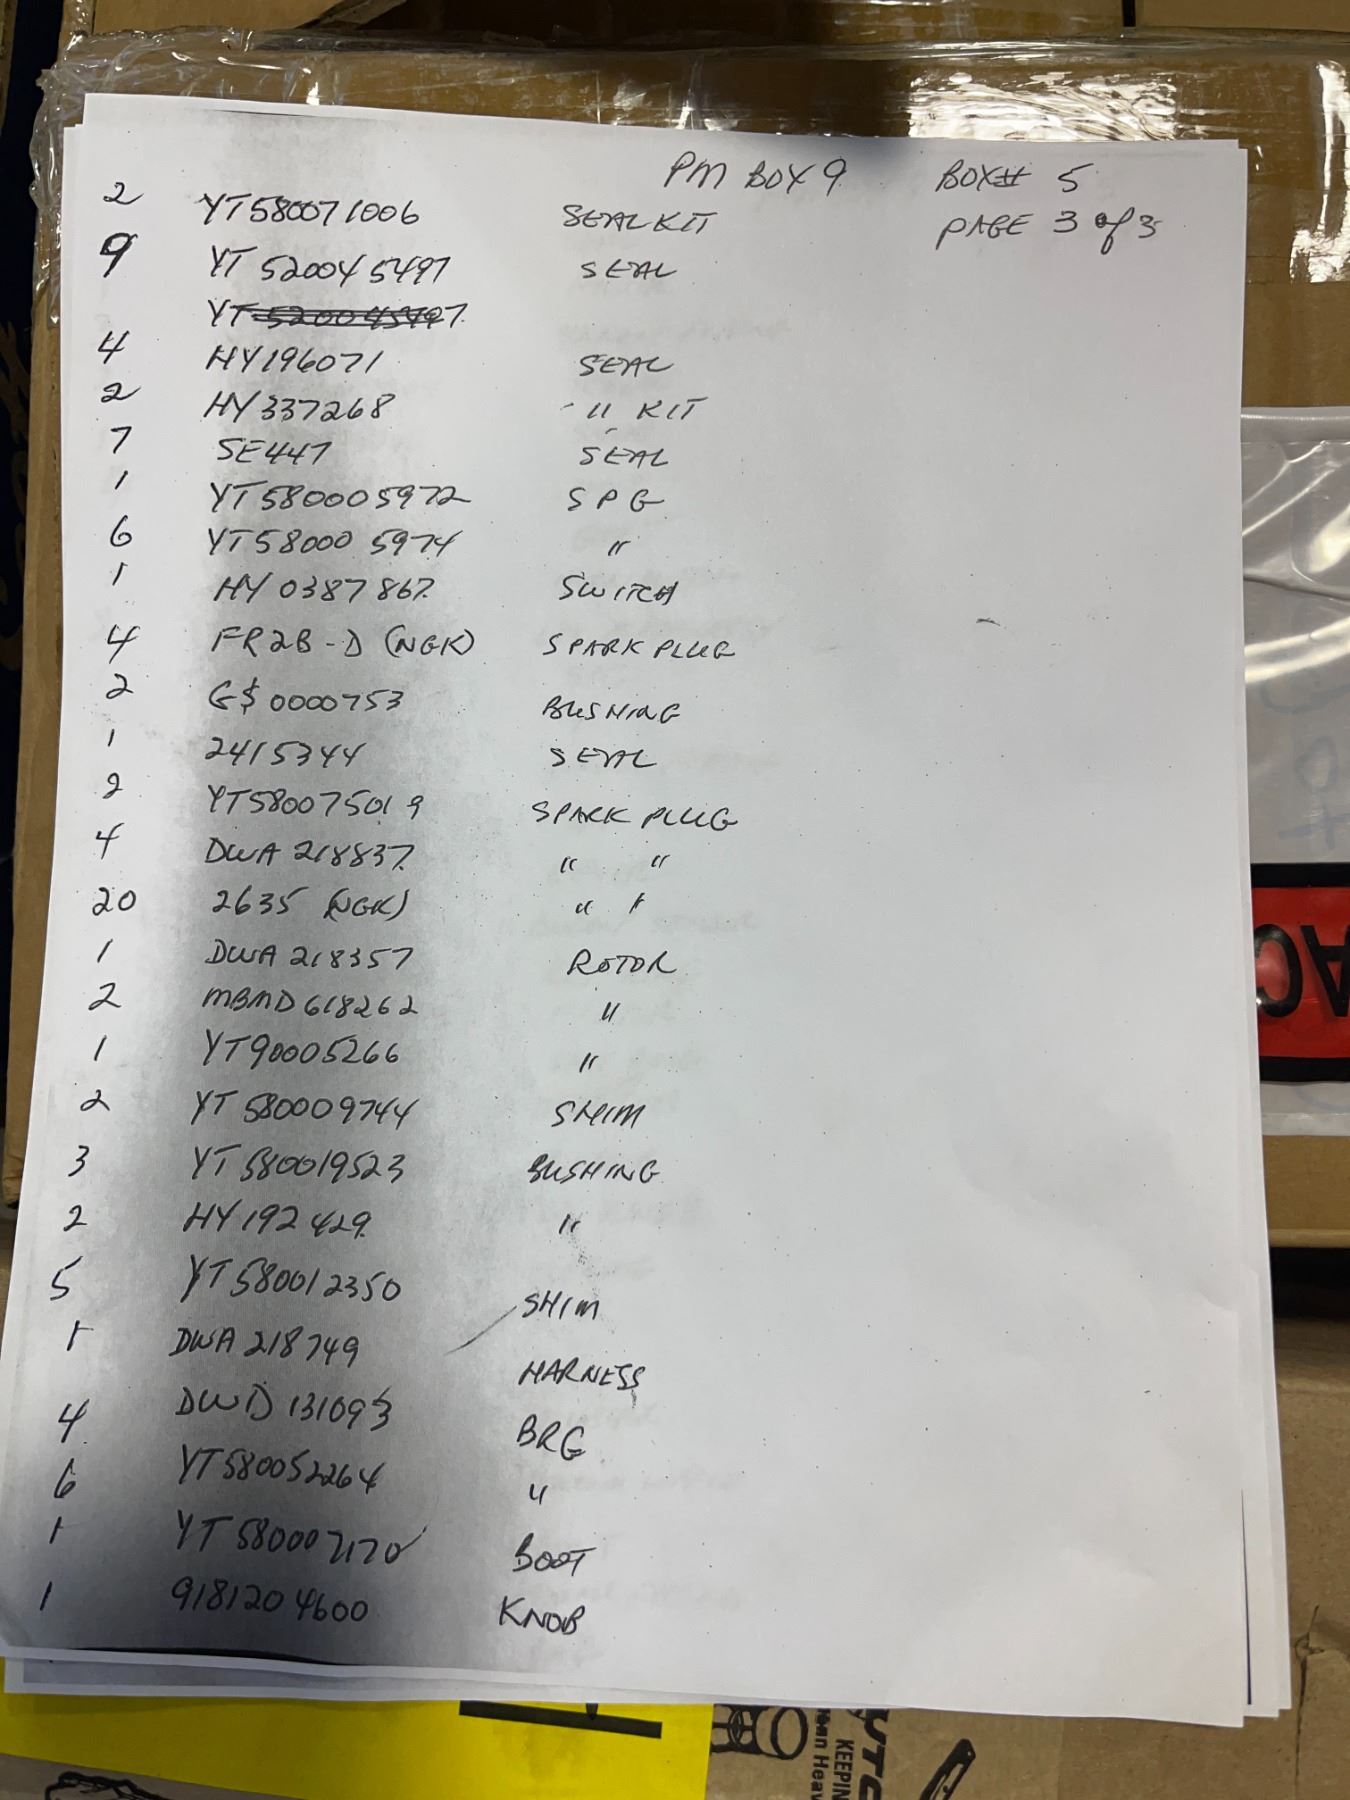 PM BOX 9 BOX# 5
PAGE 3 of 3
2 YT580071006 SEAL KIT
9 YT 520045497 SEAL
YT 520045497
4 HY196071 SEAL
2 HY337268 " KIT
7 SE447 SEAL
1 YT580005972 SPG
6 YT58000 5974 "
1 HY 0387867 SWITCH
4 FR2B-D (NGK) SPARK PLUG
2 G$0000753 BUSHING
1 2415344 SEAL
2 YT580075019 SPARK PLUG
4 DWA 218837 " "
20 2635 (NGK) " "
1 DWA 218357 ROTOR
2 MBMD618262 "
1 YT90005266 "
2 YT 580009744 SHIM
3 YT 580019523 BUSHING
2 HY192429 "
5 YT580012350 SHIM
1 DWA 218749 HARNESS
4 DWD 131093 BRG
6 YT580052264 "
1 YT 580007170 BOOT
1 9181204600 KNOB
KEEPIN